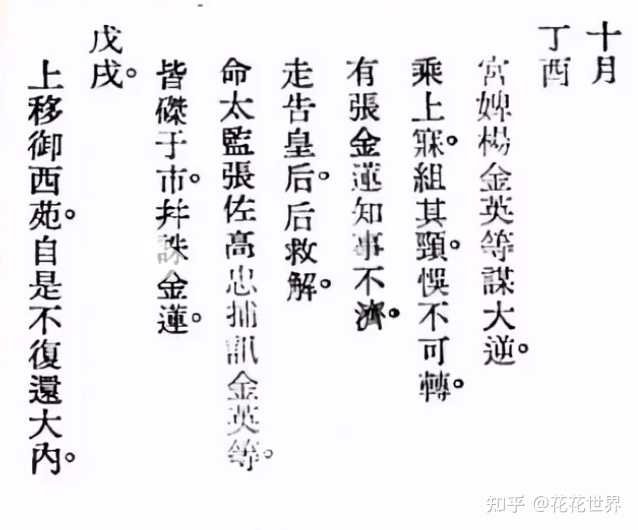 十月
丁酉
宮婢楊金英等謀大逆。
乘上寐。組其頸。悞不可轉。
有張金蓮知事不濟。
走告皇后。后救解。
命太監張佐高忠捕訊金英等。
皆磔于市。并誅金蓮。
戊戌。
上移御西苑。自是不復還大內。
知乎 @花花世界